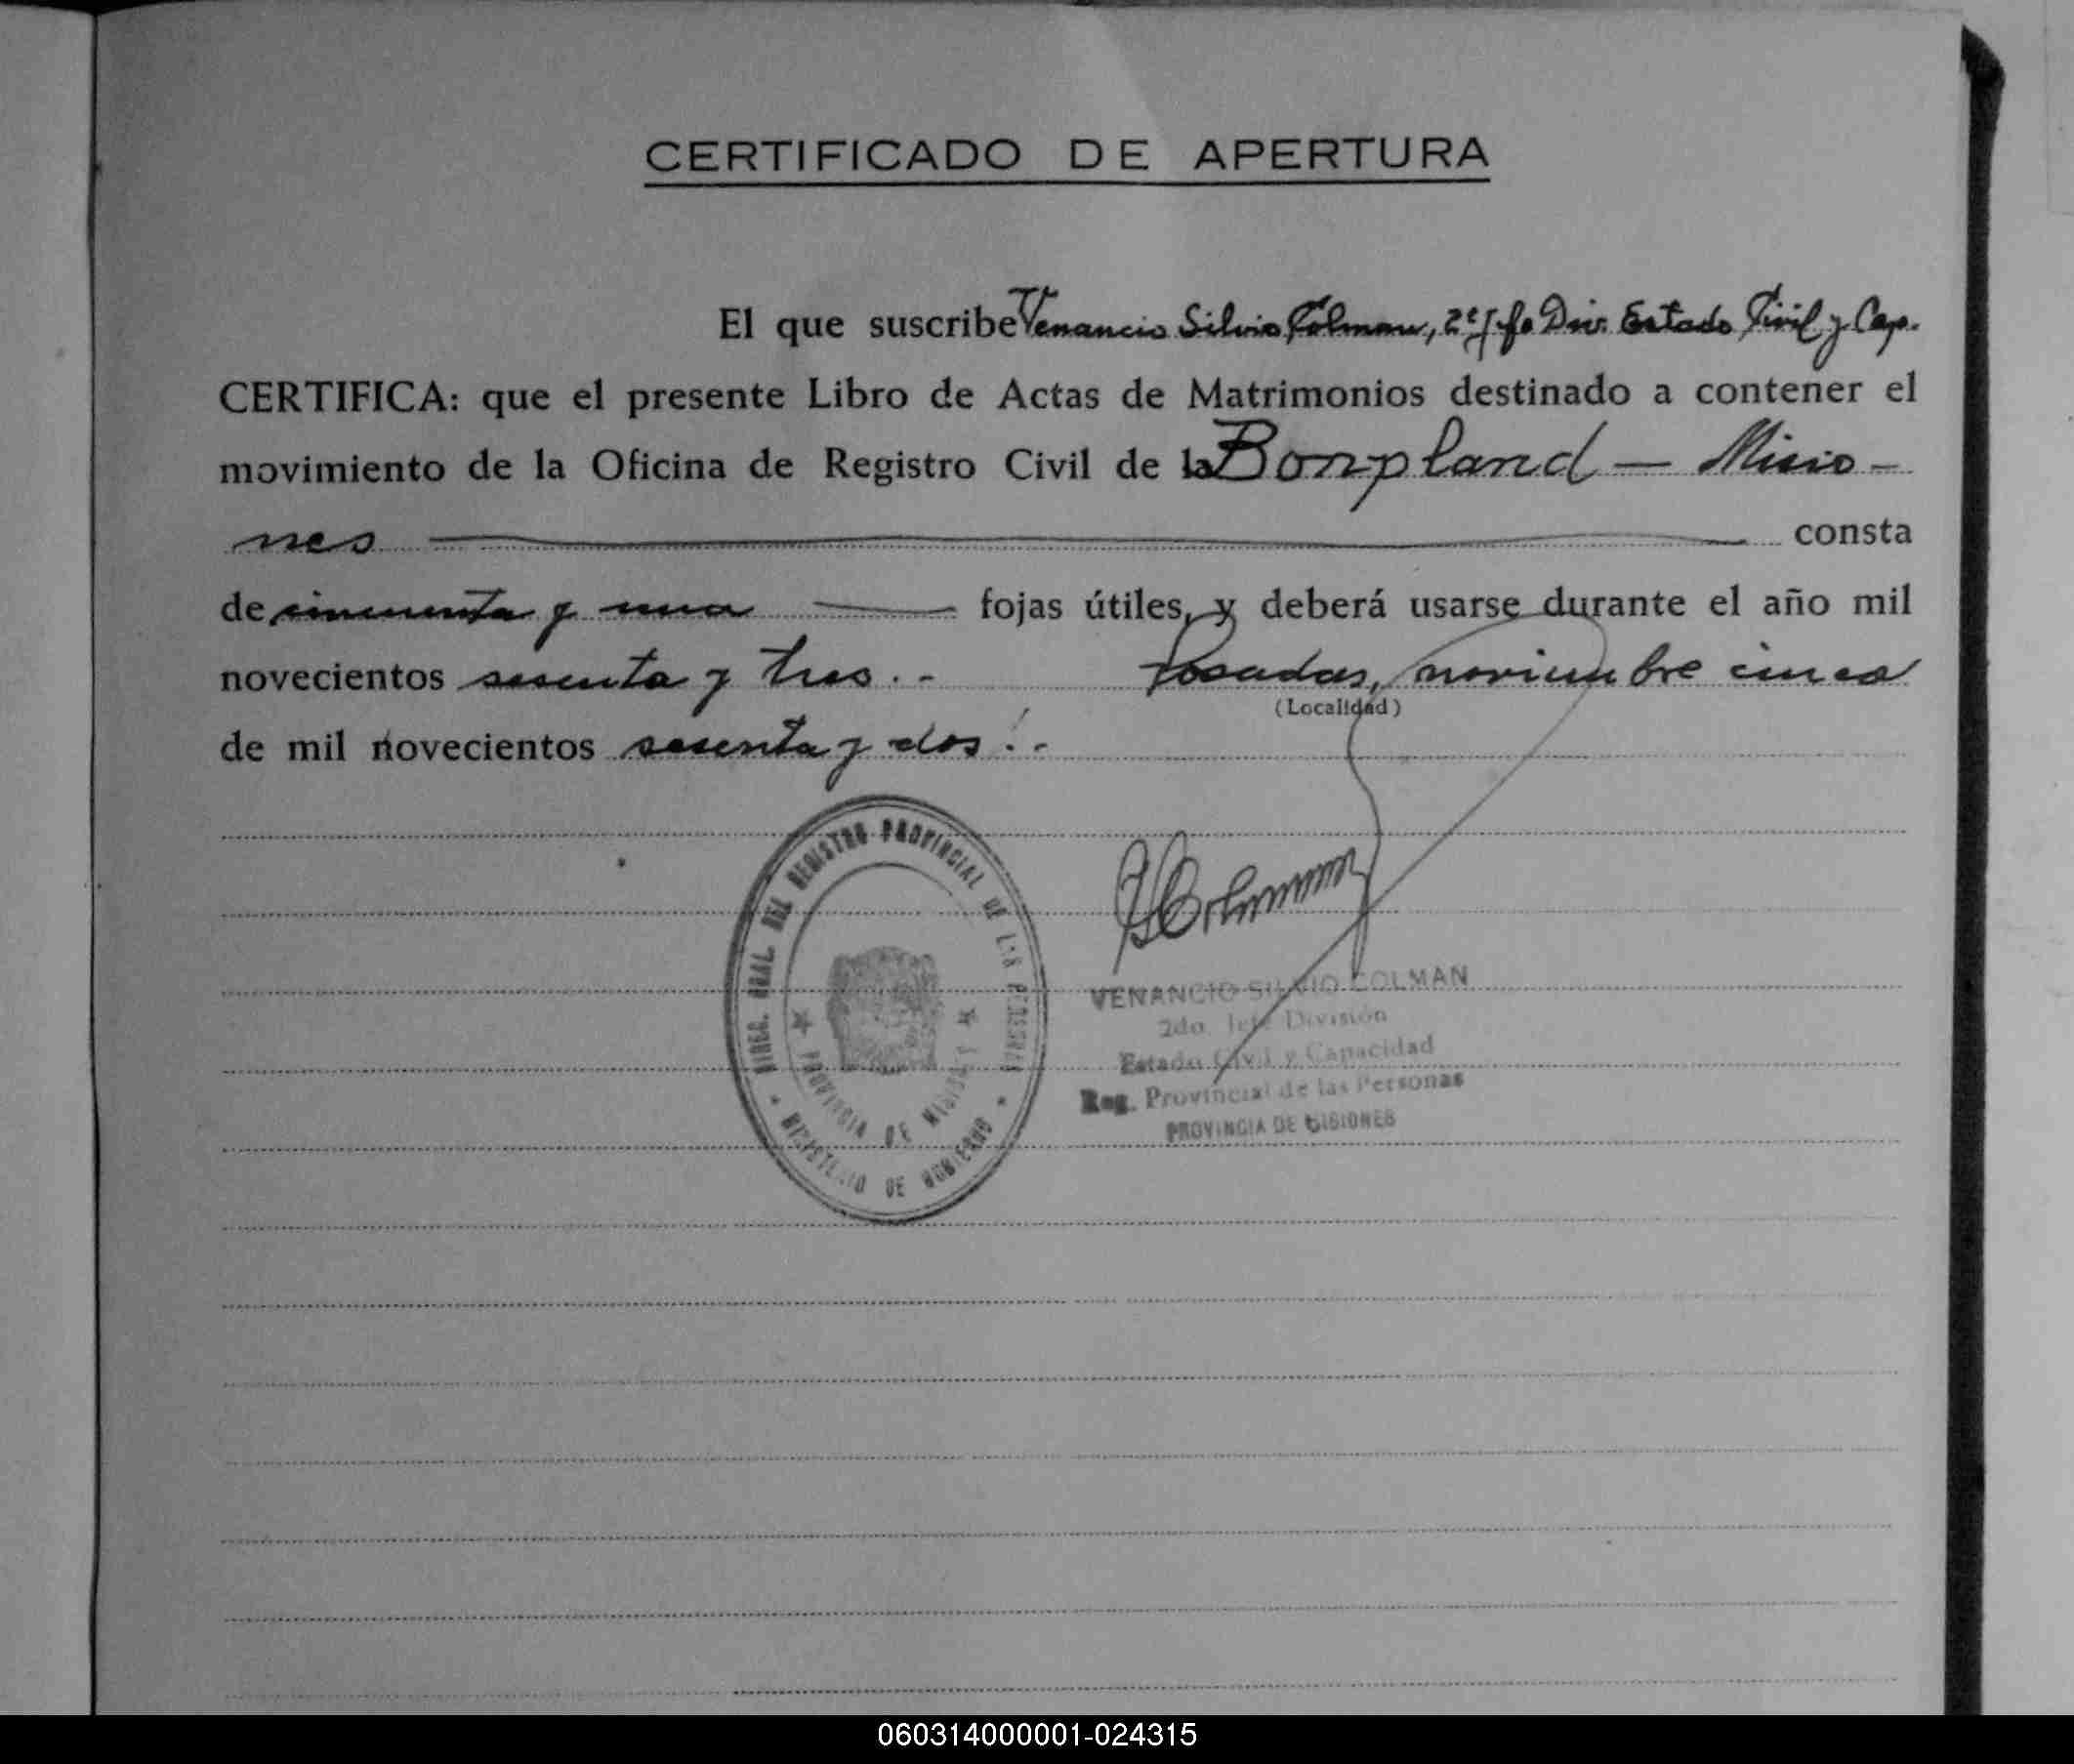 CERTIFICADO DE APERTURA
El que suscribe Venancio Silvio Colman, 2º Jefe Div. Estado Civil y Cap.
CERTIFICA: que el presente Libro de Actas de Matrimonios destinado a contener el
movimiento de la Oficina de Registro Civil de la Bonpland — Misio-
nes consta
de cincuenta y una fojas útiles, y deberá usarse durante el año mil
novecientos sesenta y tres.- Posadas, noviembre cinco
(Localidad)
de mil novecientos sesenta y dos.-
DIREC. GRAL. DEL REGISTRO PROVINCIAL DE LAS PERSONAS
PROVINCIA DE MISIONES
MINISTERIO DE GOBIERNO
VSColman
VENANCIO SILVIO COLMAN
2do. Jefe División
Estado Civil y Capacidad
Reg. Provincial de las Personas
PROVINCIA DE MISIONES
060314000001-024315